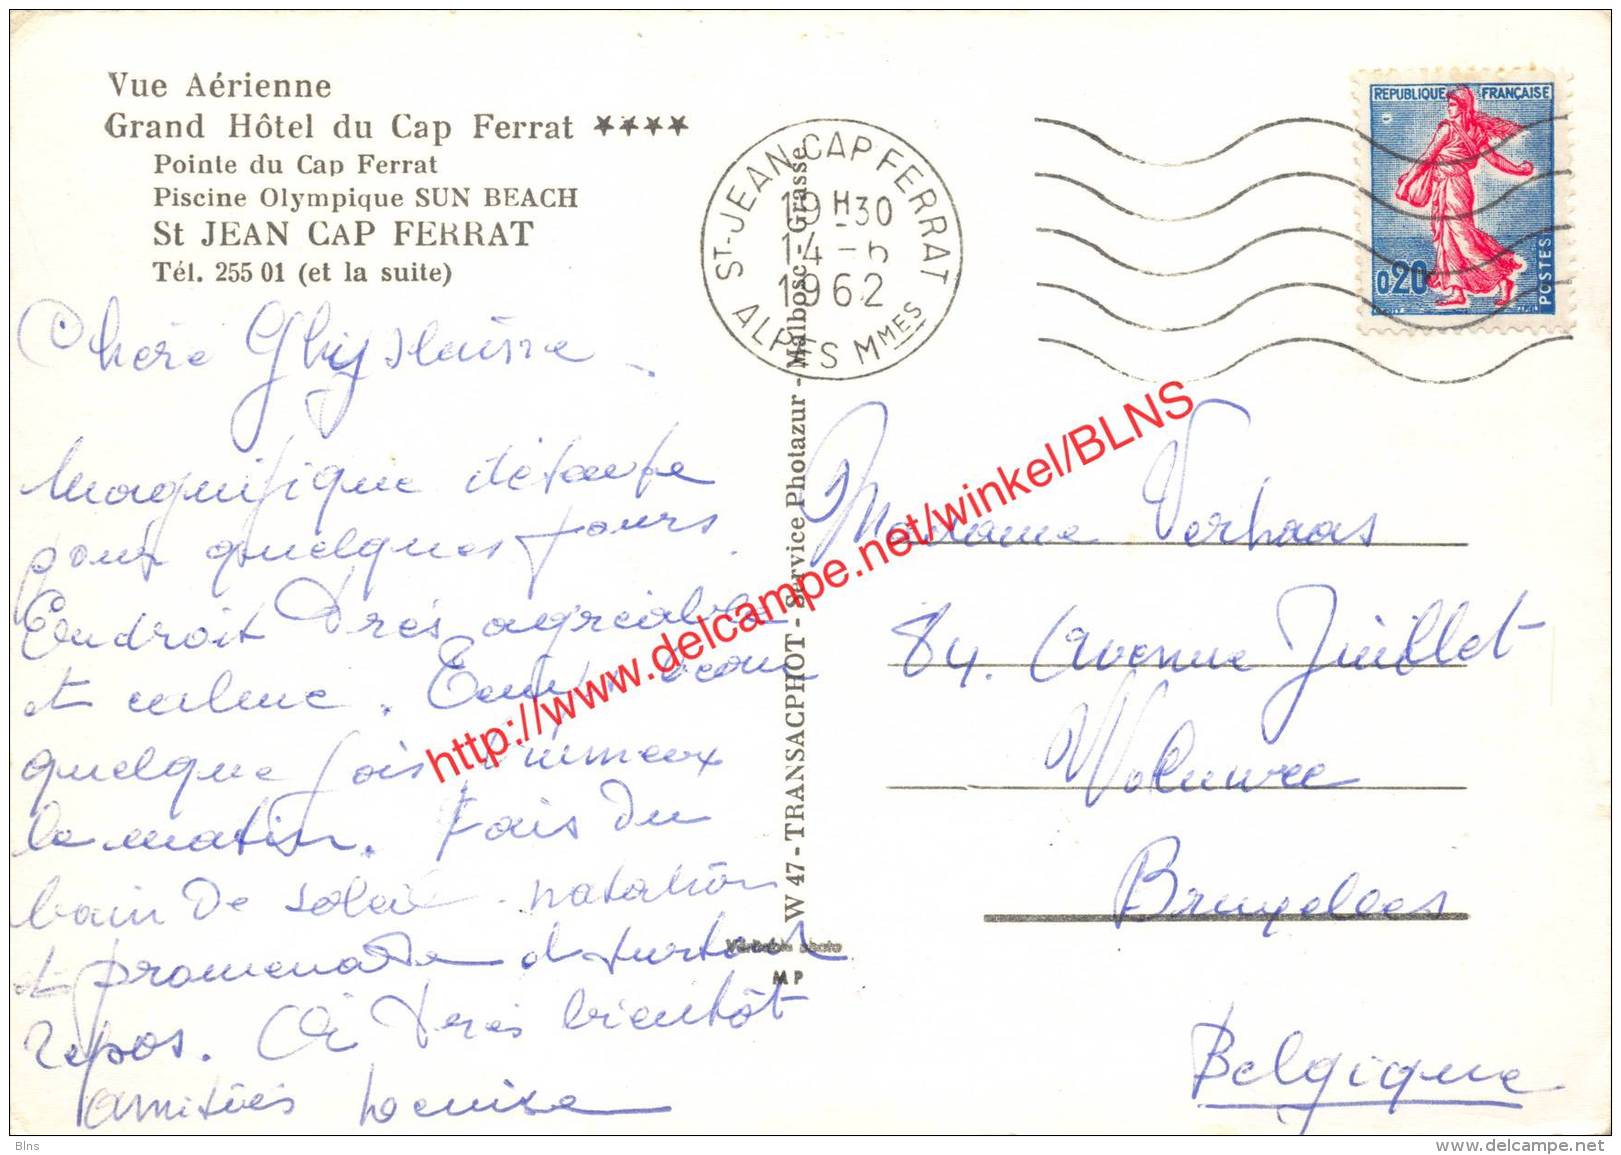 Vue Aérienne
Grand Hôtel du Cap Ferrat ★★★★
Pointe du Cap Ferrat
Piscine Olympique SUN BEACH
St JEAN CAP FERRAT
Tél. 255 01 (et la suite)
Chère Ghyslaine.
Magnifique détente
pour quelques jours.
Endroit très agréable
et calme. beau
quelque fois brumeux
le matin. Fais du
bain de soleil - natation
et promenade et surtout
repos. à très bientôt
amitiés Louise
W 47 - TRANSACPHOT - Service Photazur - Malbosc - Grasse
Véritable photo
MP
ST-JEAN-CAP FERRAT
19H30
14-6
1962
ALPES Mmes
REPUBLIQUE FRANÇAISE
0,20
POSTES
Madame Verhaas
84. Avenue Juillet
Woluwee
Bruxelles
Belgique
http://www.delcampe.net/winkel/BLNS
Blns
www.delcampe.net